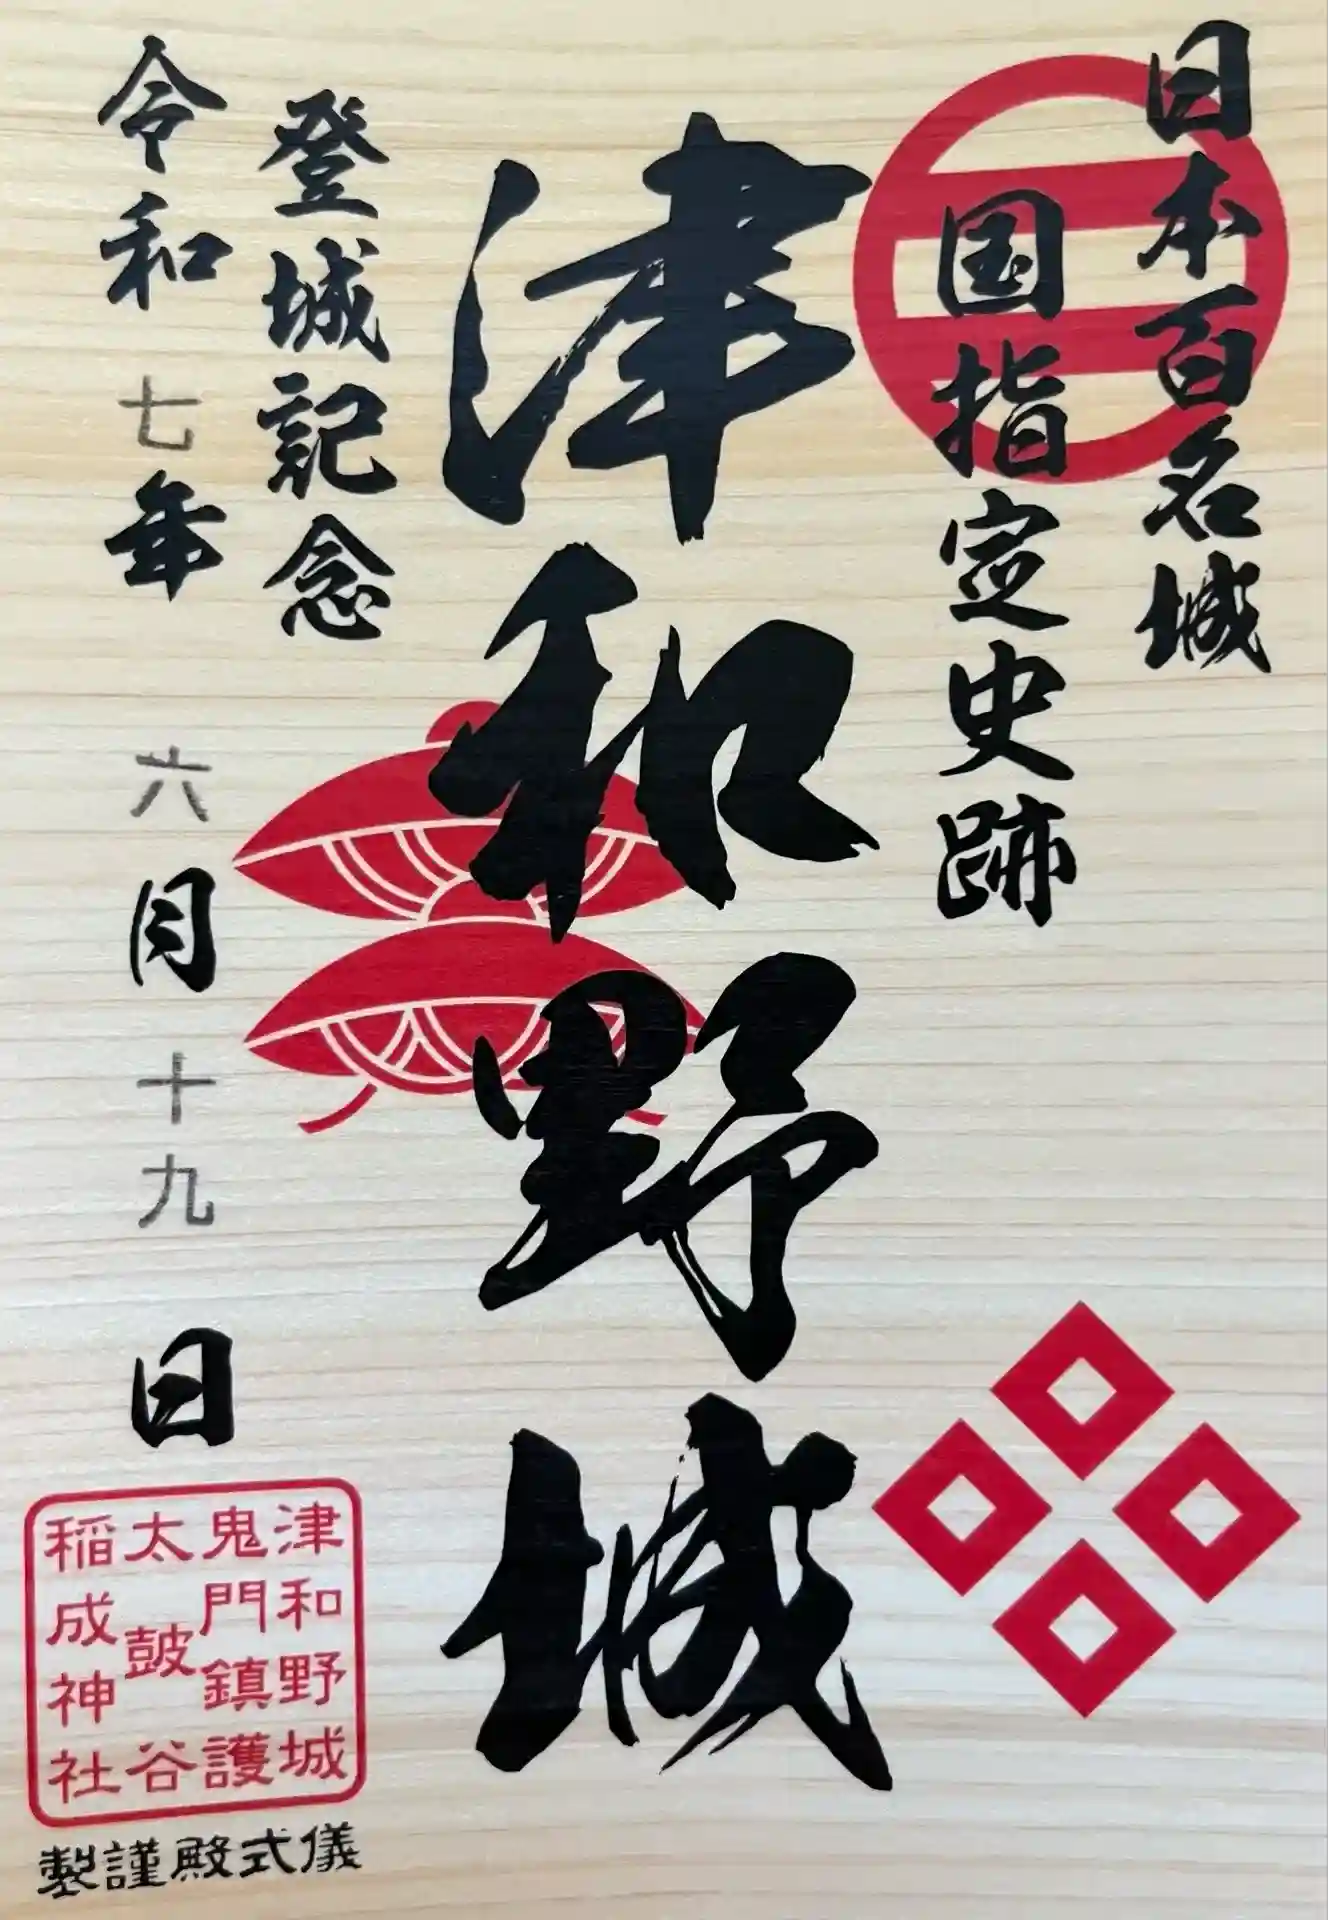 日本百名城
国指定史跡
津和野城
登城記念
令和七年六月十九日
津和野城
鬼門鎮護
太皷谷
稲成神社
儀式殿謹製